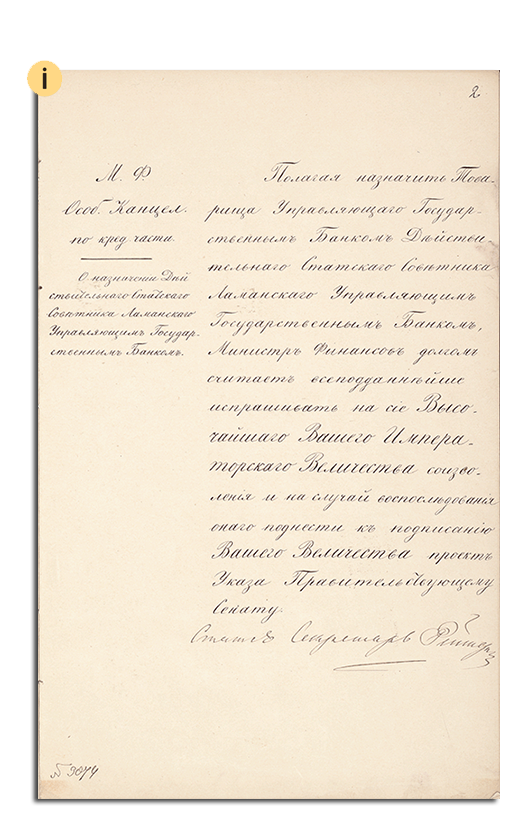 i
2
М. Ф.
Особ. Канцел.
по кред. части.
О назначеніи Дѣй
ствительнаго Статскаго
Совѣтника Ламанскаго
Управляющимъ Государ-
ственнымъ Банкомъ.
Полагая назначить Това-
рища Управляющаго Государ-
ственнымъ Банкомъ Дѣйстви-
тельнаго Статскаго Совѣтника
Ламанскаго Управляющимъ
Государственнымъ Банкомъ,
Министръ Финансовъ долгомъ
считаетъ всеподданнѣйше
испрашивать на сіе Высо-
чайшаго Вашего Импера-
торскаго Величества соизво-
ленія и на случай воспослѣдованія
онаго поднести къ подписанію
Вашего Величества проектъ
Указа Правительствующему
Сенату.
Статсъ Секретарь Рейтернъ
№ 3874